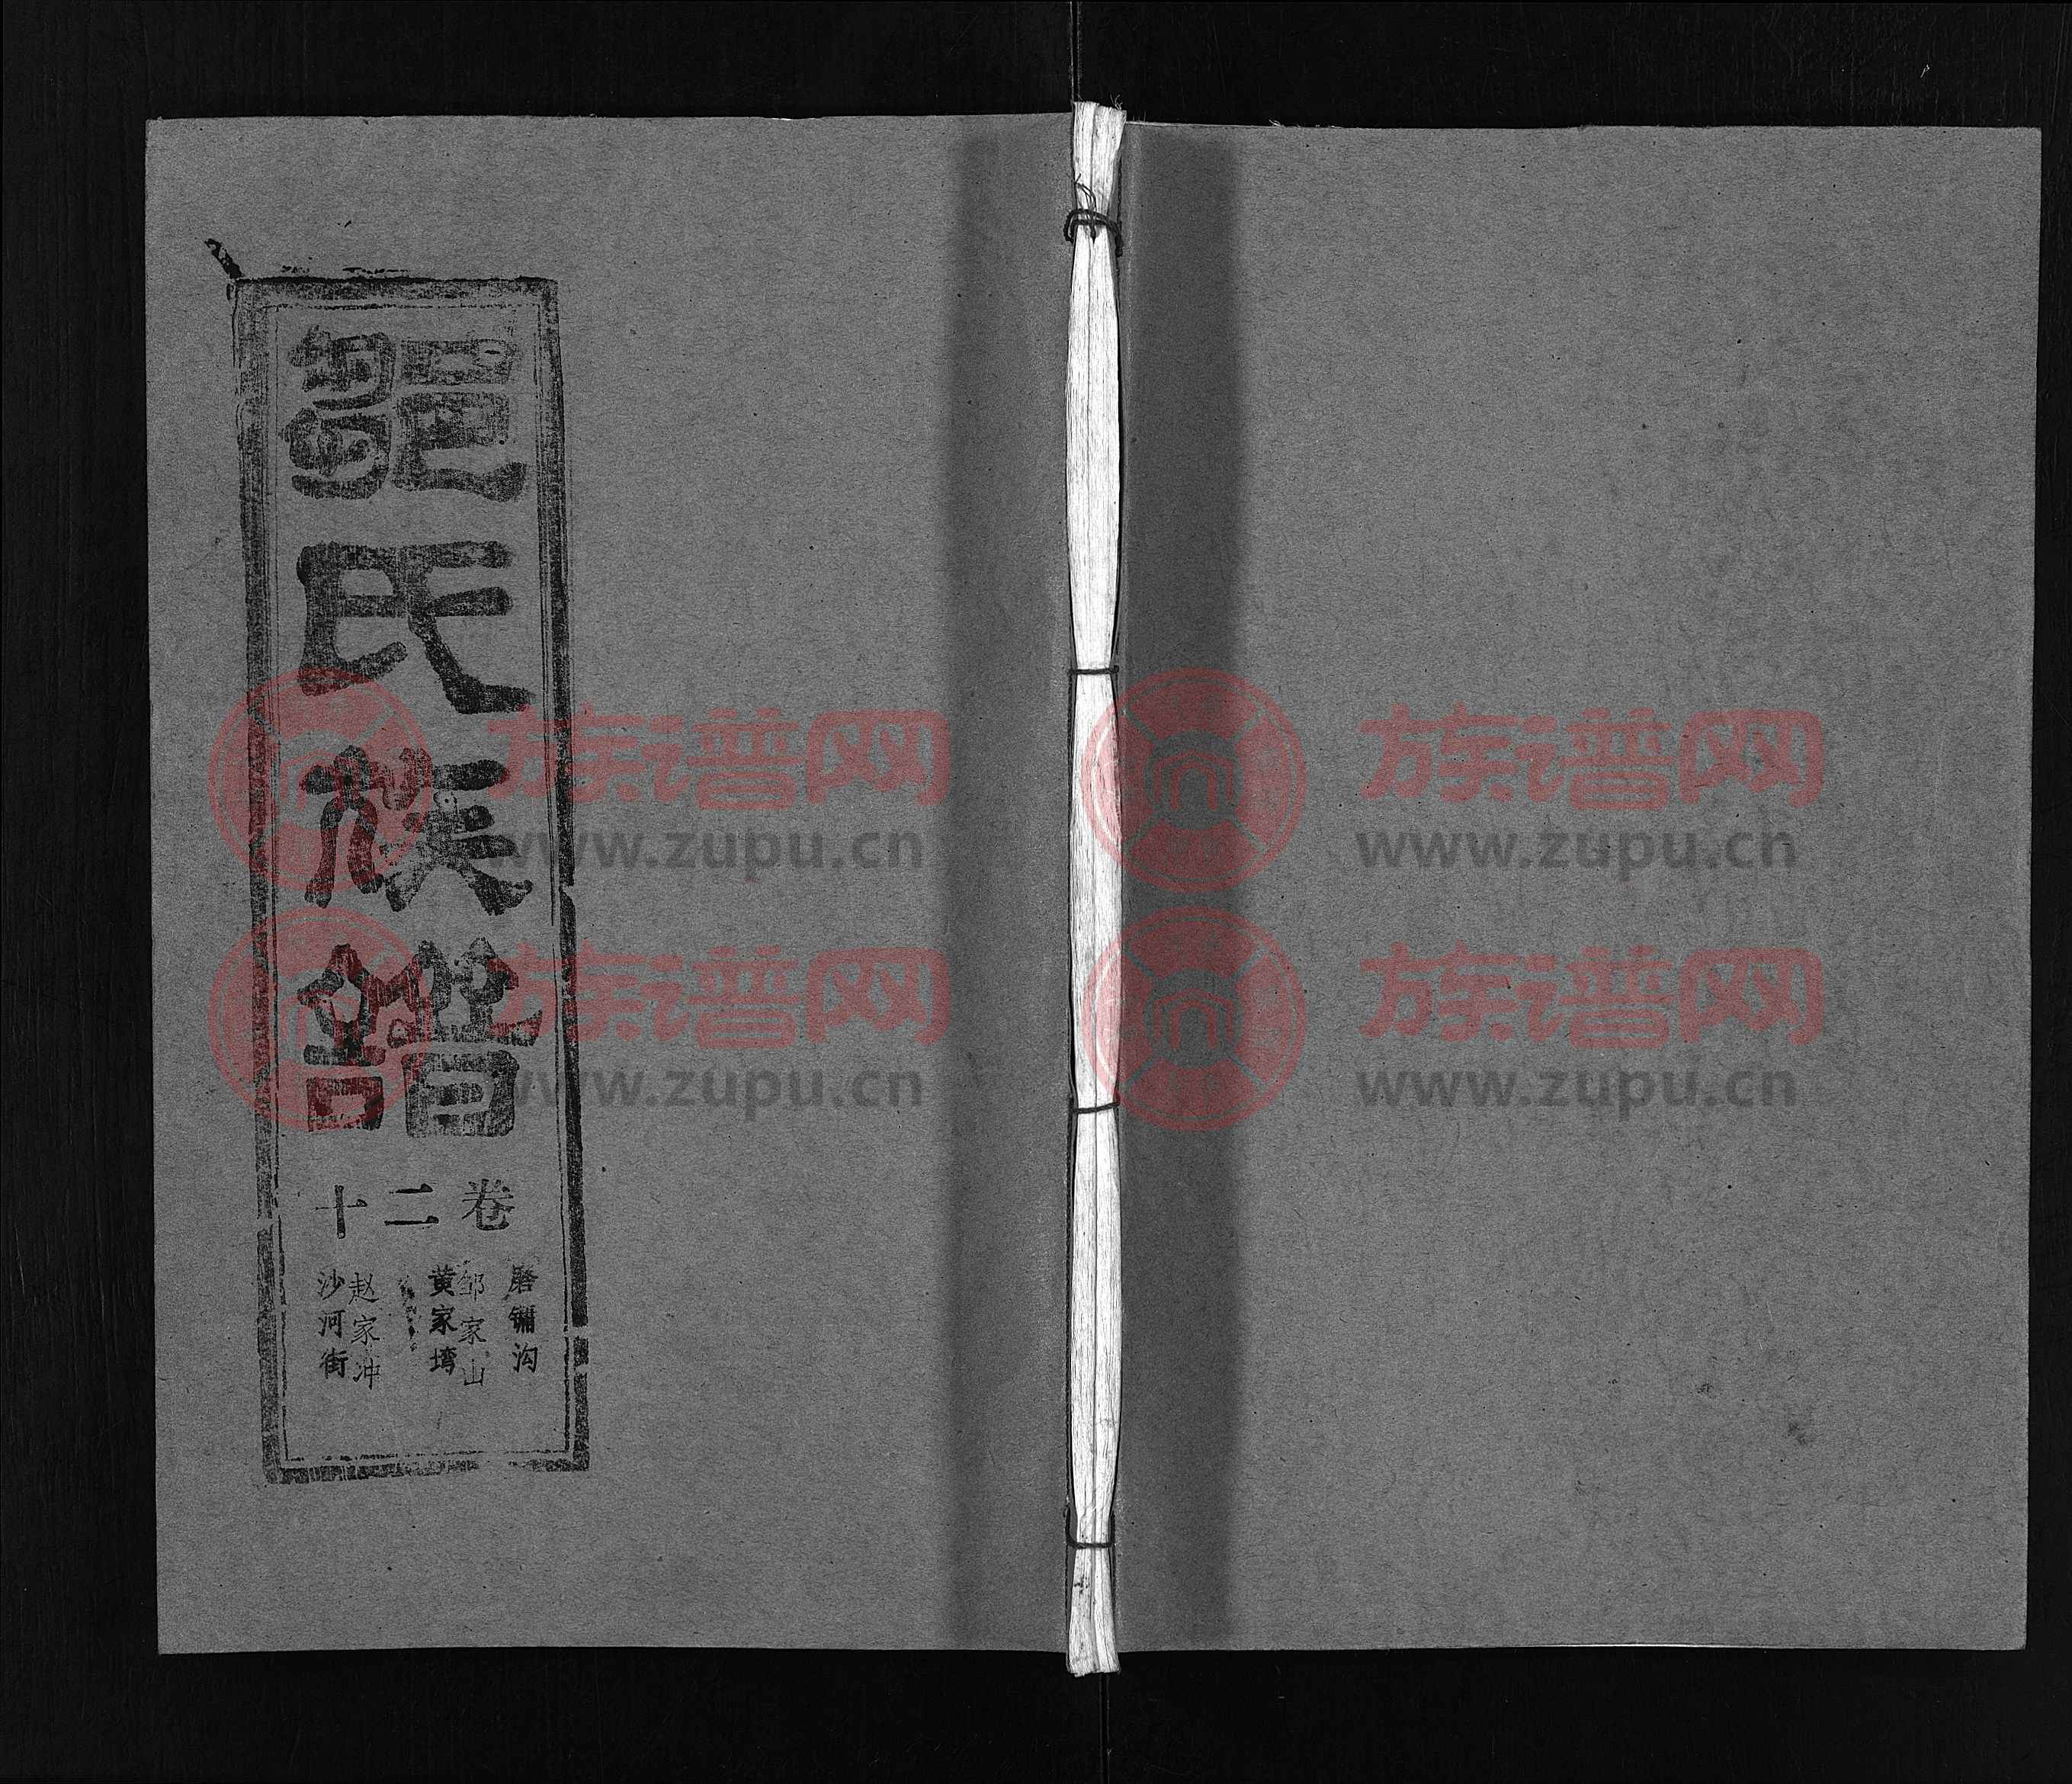 鄒氏族譜
卷二十
磨
沟
邹家山
黄家塆
赵家冲
沙河街
族谱网
www.zupu.cn
族谱网
www.zupu.cn
族谱网
www.zupu.cn
族谱网
www.zupu.cn